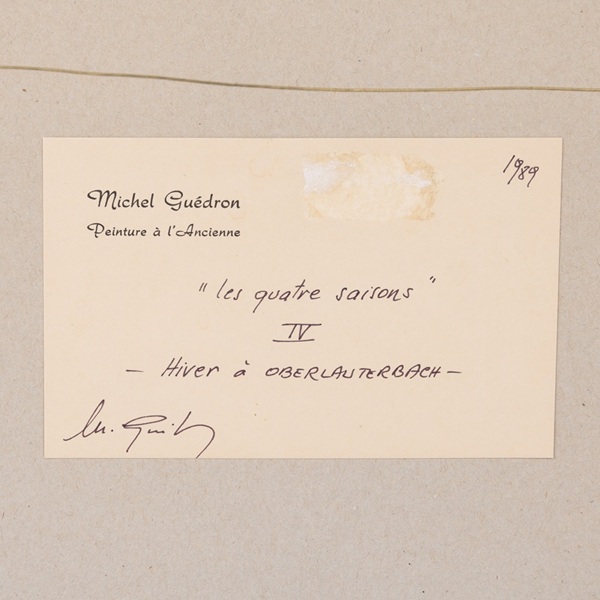 1989
Michel Guédron
Peinture à l'Ancienne
"les quatre saisons"
IV
- Hiver à OBERLAUTERBACH -